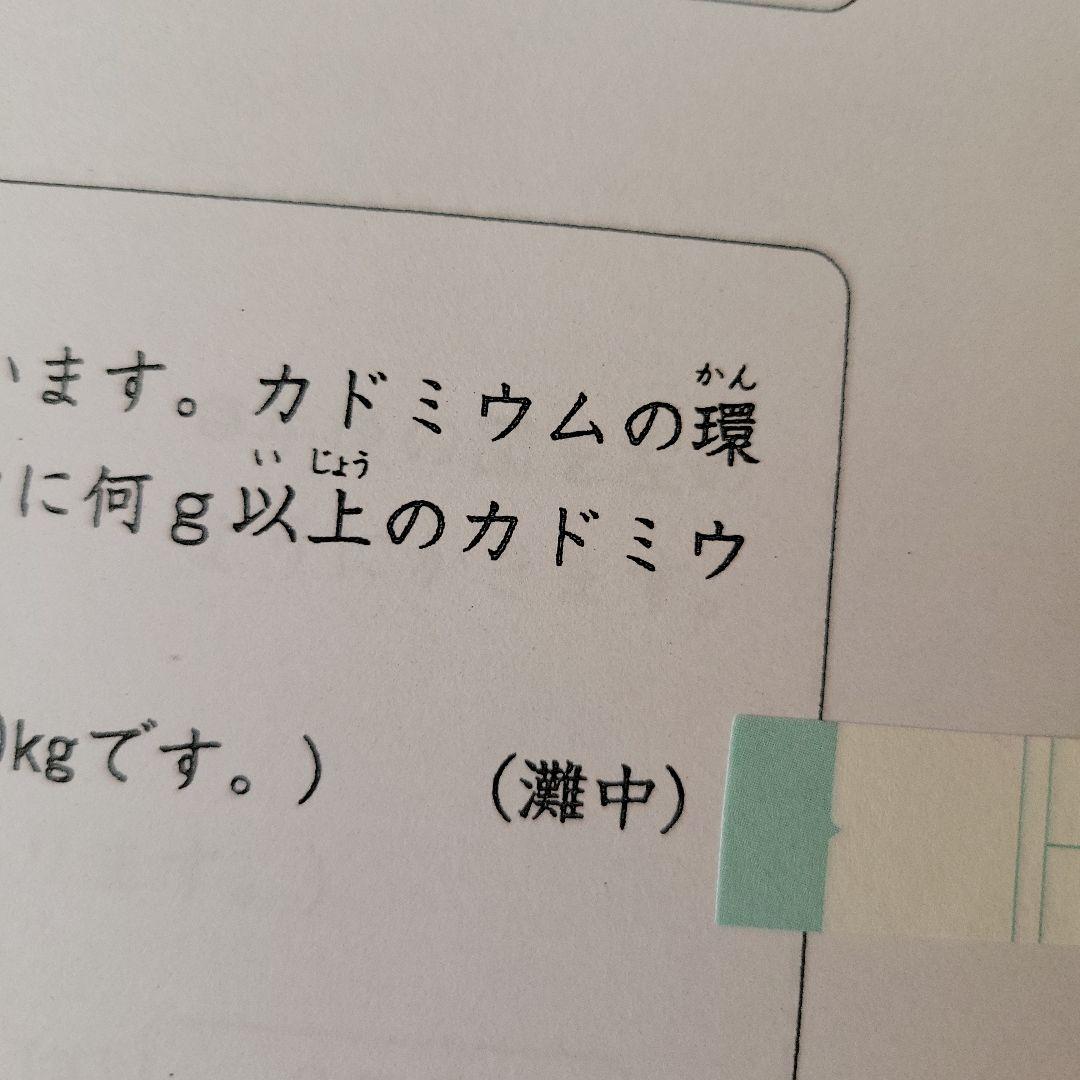 います。カドミウムの環
かん
に何g以上のカドミウ
いじょう
kgです。)
(灘中)